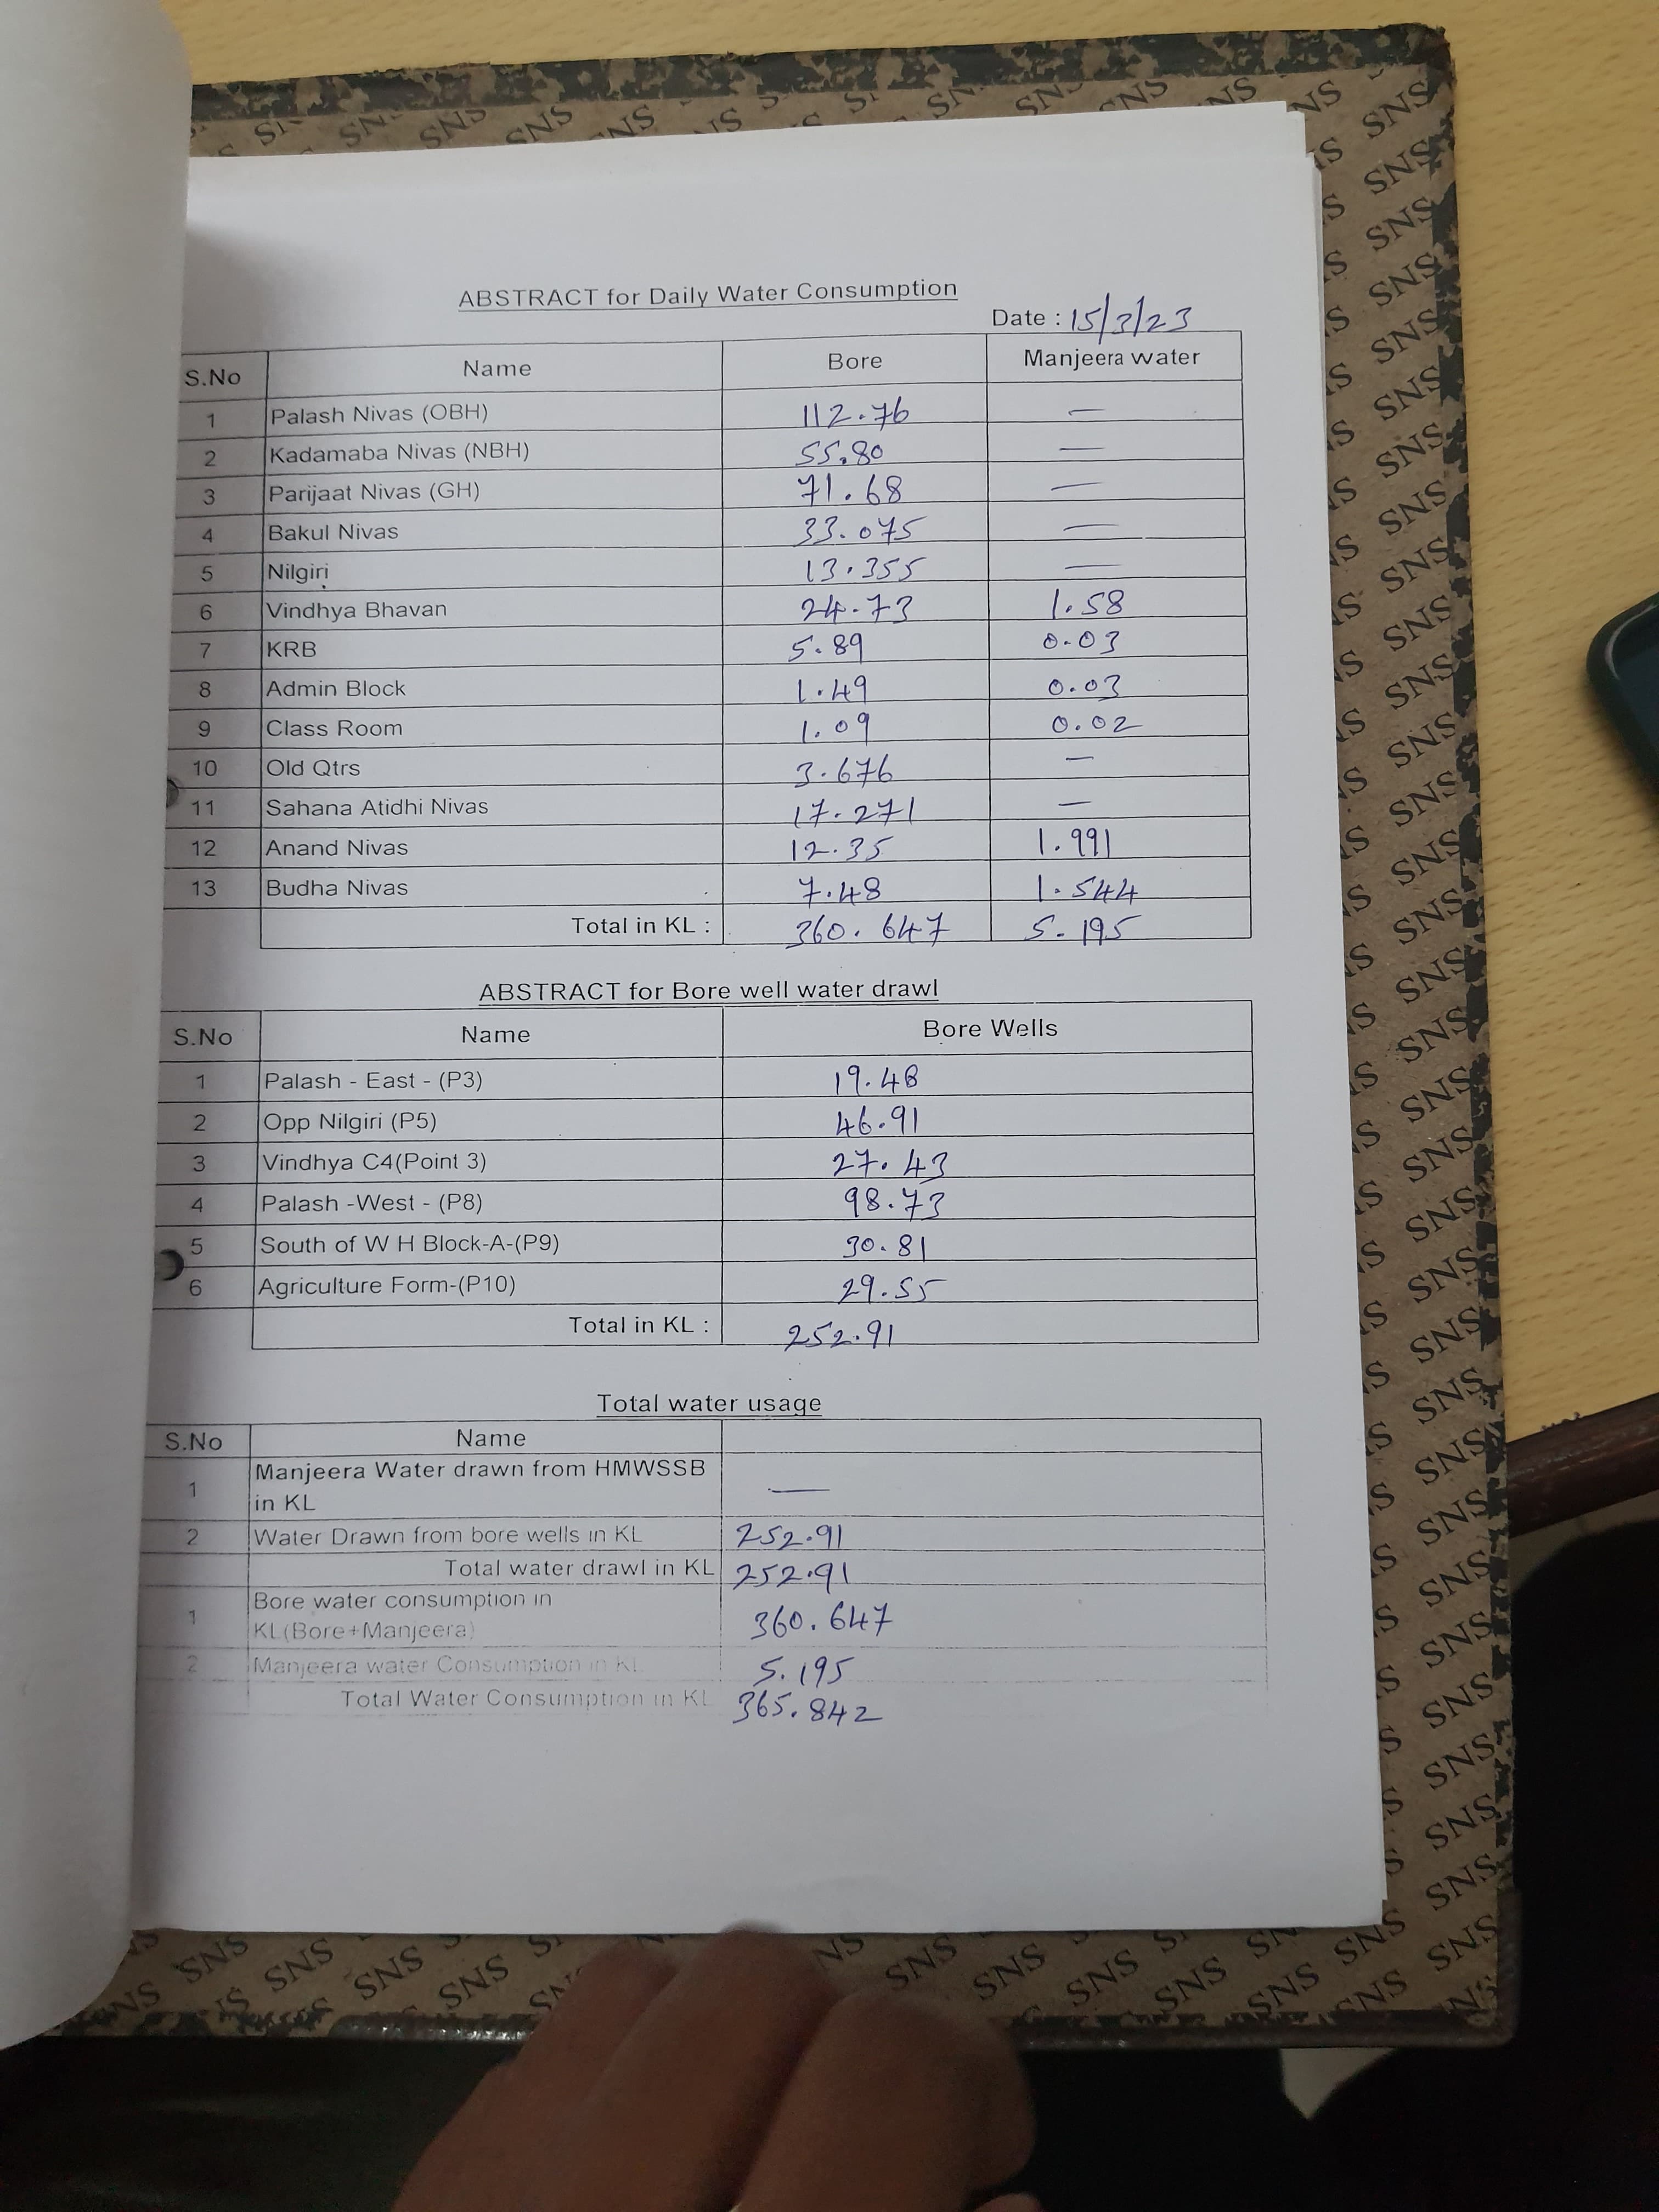 ABSTRACT for Daily Water Consumption
Date : 15/3/23
S.No Name Bore Manjeera water
1 Palash Nivas (OBH) 112.76 —
2 Kadamaba Nivas (NBH) 55.80 —
3 Parijaat Nivas (GH) 71.68 —
4 Bakul Nivas 33.075 —
5 Nilgiri 13.355 —
6 Vindhya Bhavan 24.73 1.58
7 KRB 5.89 0.03
8 Admin Block 1.49 0.03
9 Class Room 1.09 0.02
10 Old Qtrs 3.676 —
11 Sahana Atidhi Nivas 17.271 —
12 Anand Nivas 12.35 1.991
13 Budha Nivas 7.48 1.544
Total in KL : 360.647 5.195
ABSTRACT for Bore well water drawl
S.No Name Bore Wells
1 Palash - East - (P3) 19.48
2 Opp Nilgiri (P5) 46.91
3 Vindhya C4(Point 3) 27.43
4 Palash -West - (P8) 98.73
5 South of W H Block-A-(P9) 30.81
6 Agriculture Form-(P10) 29.55
Total in KL : 252.91
Total water usage
S.No Name
1 Manjeera Water drawn from HMWSSB
in KL —
2 Water Drawn from bore wells in KL 252.91
Total water drawl in KL 252.91
1 Bore water consumption in
KL(Bore+Manjeera) 360.647
2 Manjeera water Consumption in KL 5.195
Total Water Consumption in KL 365.842